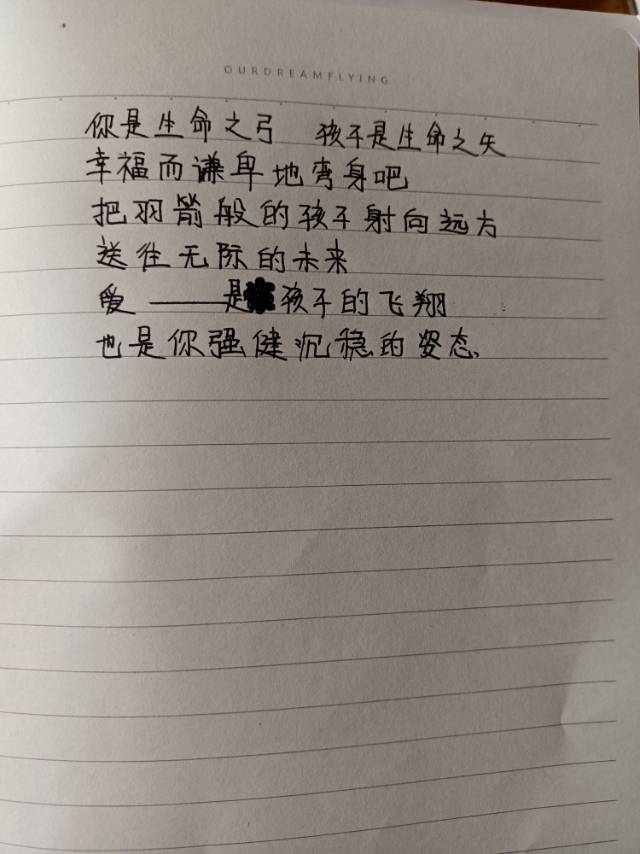 OURDREAMFLYING
你是生命之弓 孩子是生命之矢
幸福而谦卑地弯身吧
把羽箭般的孩子射向远方
送往无际的未来
爱 ——是孩子的飞翔
也是你强健沉稳的姿态.